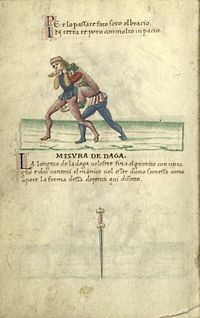 PEr lo passare fato soto el bracio
IN terra te poro con molto inpacio.
MISURA DE DAGA.
LA longeza de la daga vol esere fina al gomito con uno ta
glio e doi cantoni el manico vol esser duno somesso como
apare la forma dessa qui disotto.